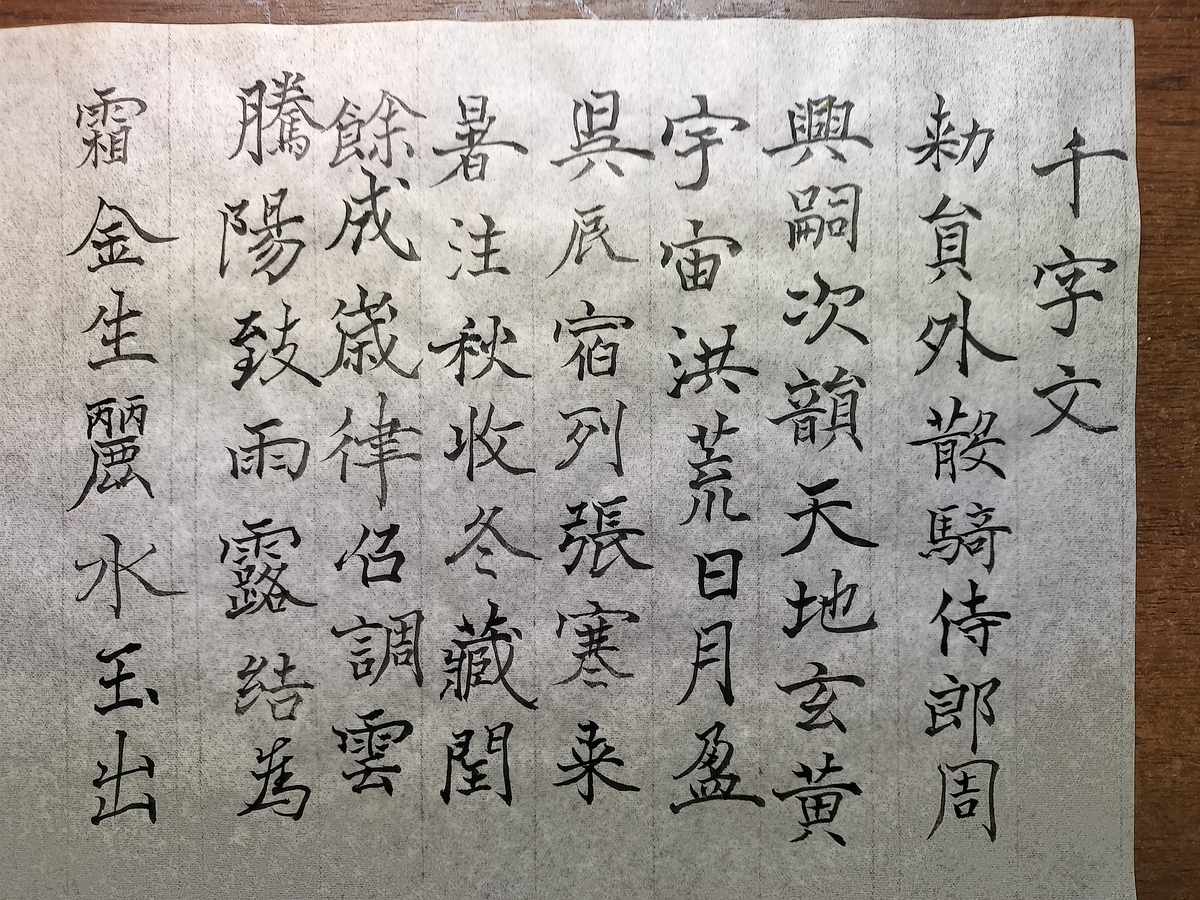 千字文
勑員外散騎侍郎周
興嗣次韻天地玄黃
宇宙洪荒日月盈
昃辰宿列張寒来
暑注秋收冬藏閏
餘成歲律召調雲
騰陽致雨露結為
霜金生麗水玉出